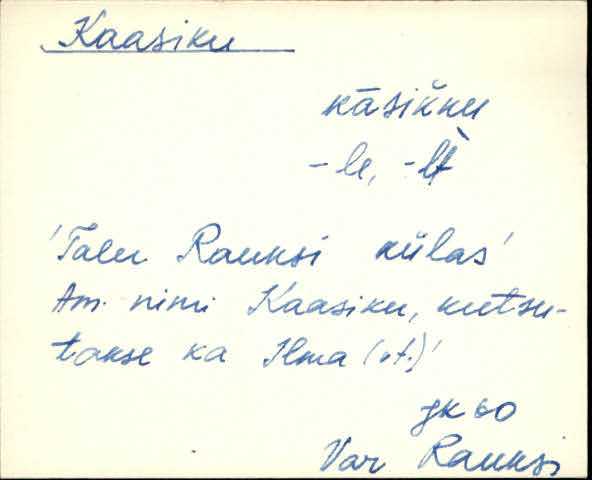 Kaasiku
kāsik̆ku
-le, -lt̀
'Talu Rauksi külas'
Am. nimi Kaasiku, kutsu-
takse ka Ilma (vt.)'
JK 60
Var Rauksi